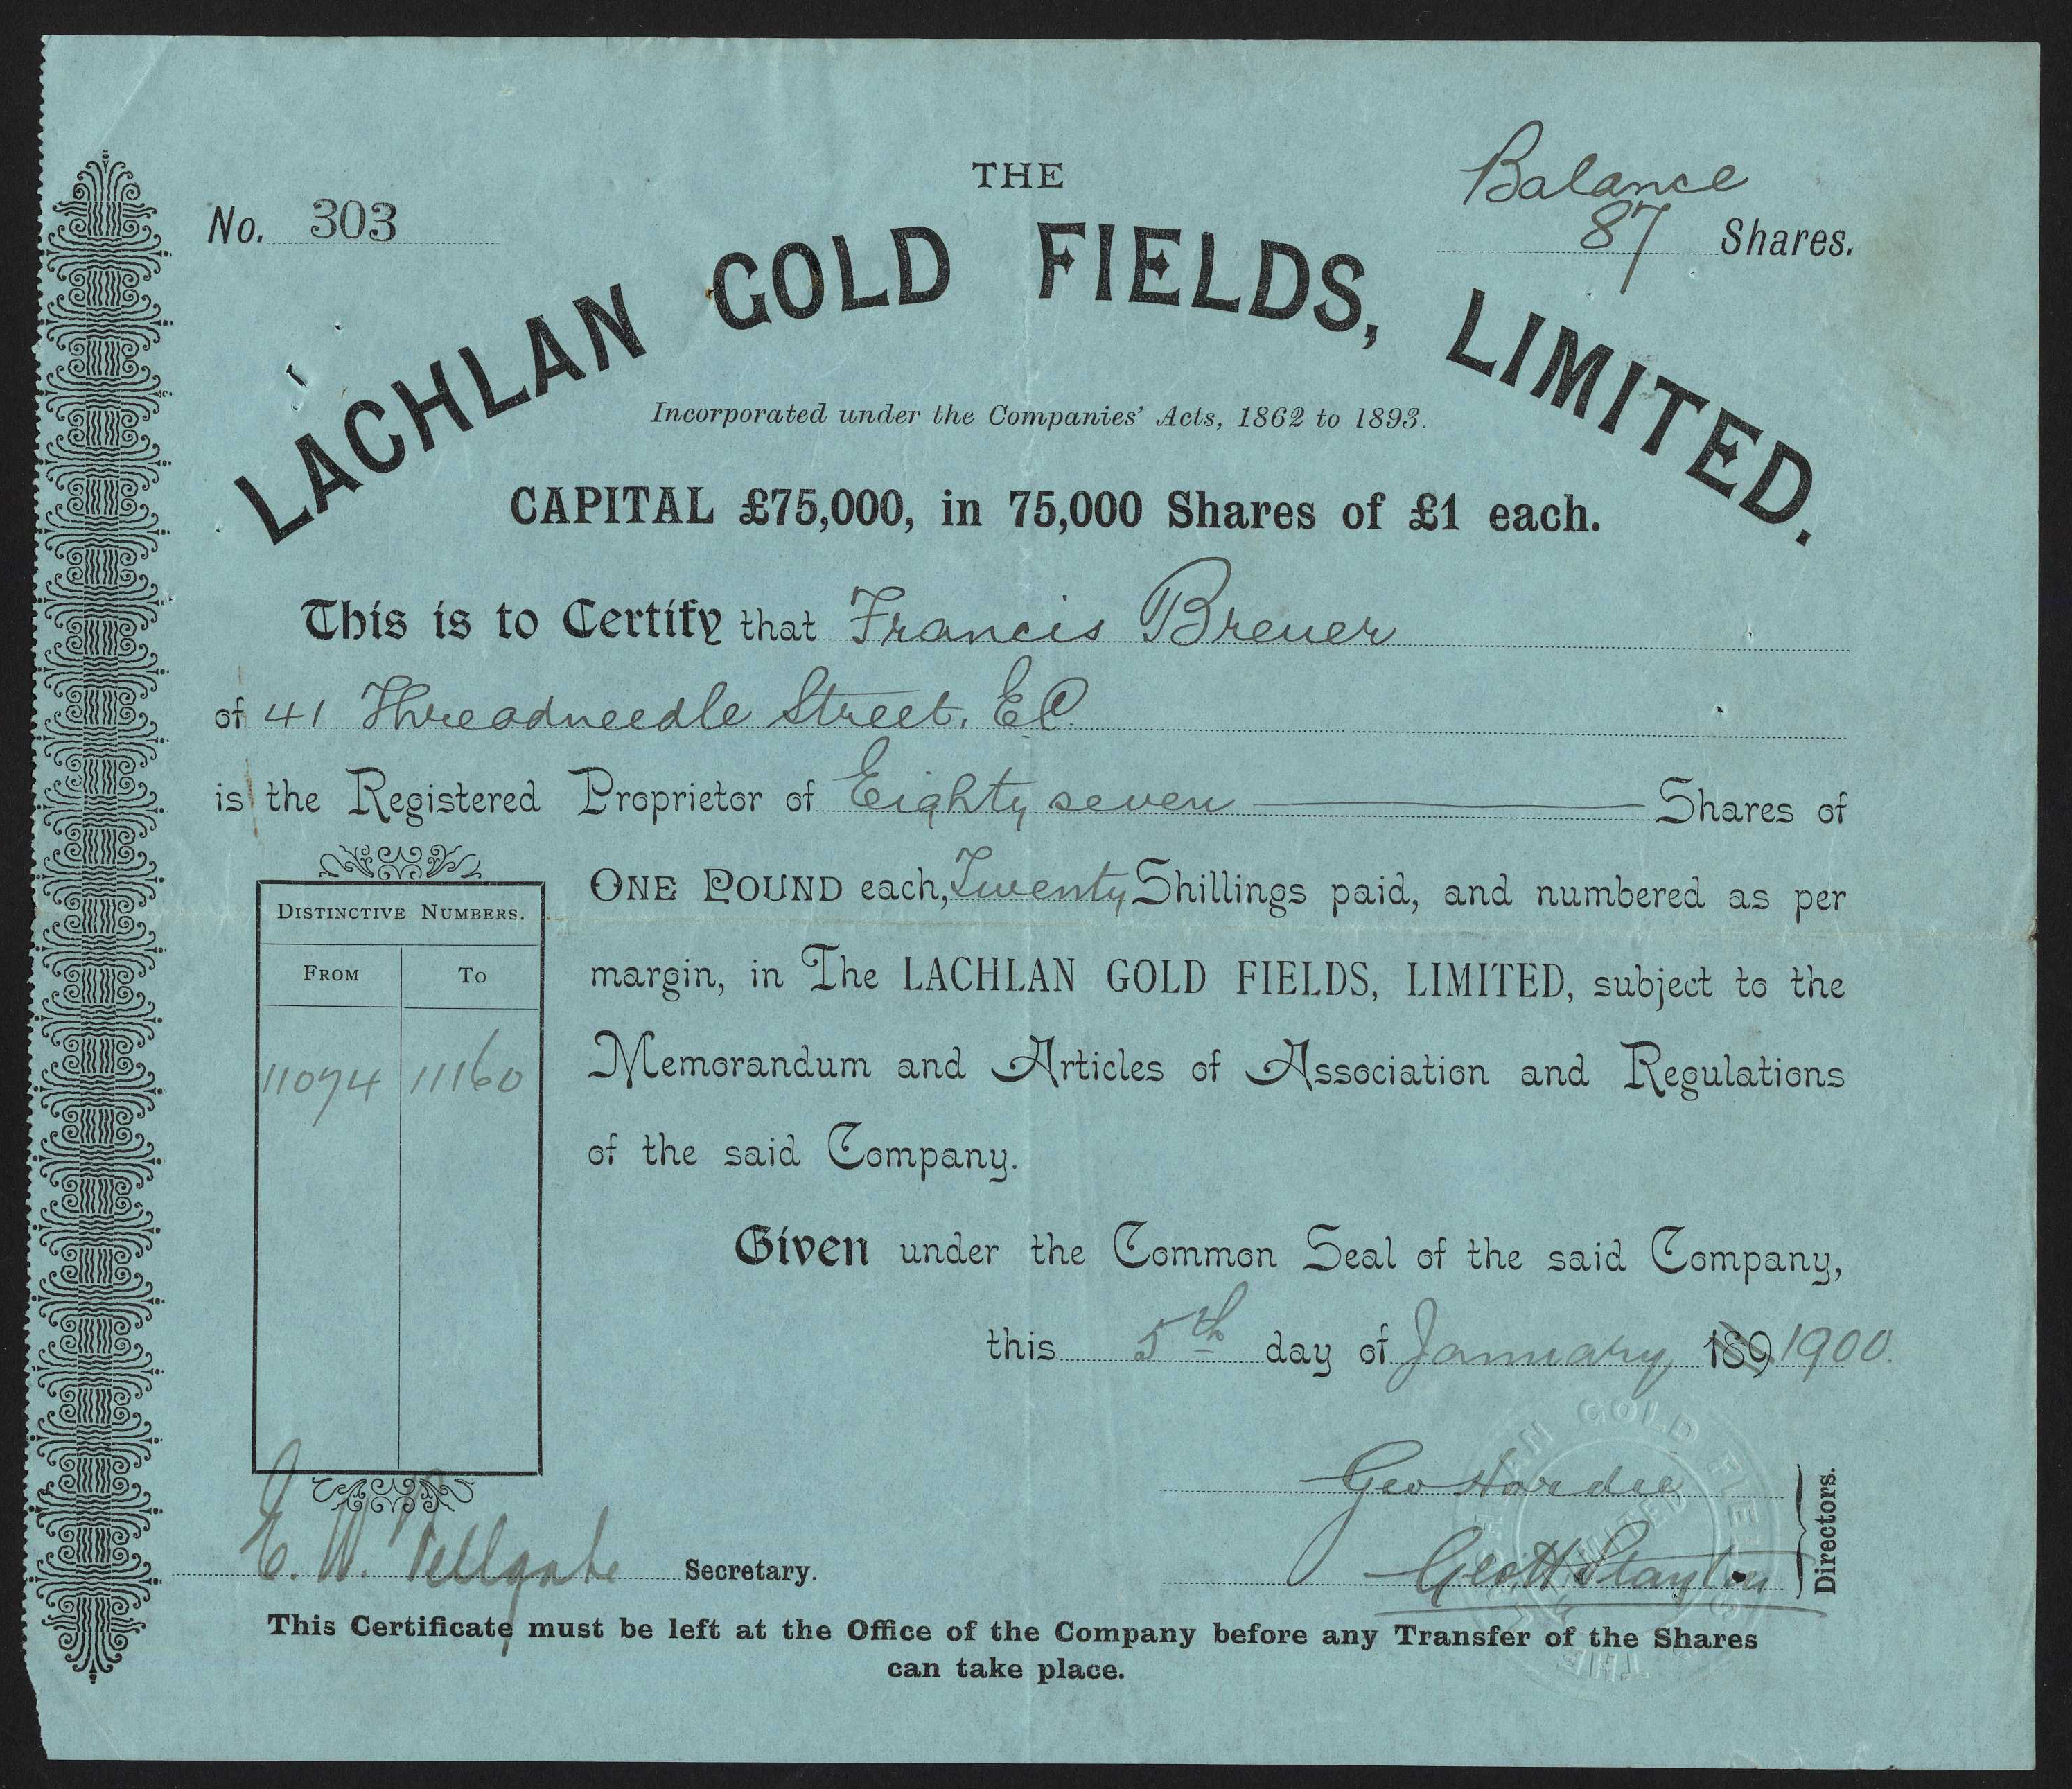 No. 303
THE
Balance
87 Shares.
LACHLAN GOLD FIELDS, LIMITED.
Incorporated under the Companies' Acts, 1862 to 1893.
CAPITAL £75,000, in 75,000 Shares of £1 each.
This is to Certify that Francis Breuer
of 41 Threadneedle Street. E.C.
is the Registered Proprietor of Eighty seven Shares of
ONE POUND each, Twenty Shillings paid, and numbered as per
margin, in The LACHLAN GOLD FIELDS, LIMITED, subject to the
Memorandum and Articles of Association and Regulations
of the said Company.
DISTINCTIVE NUMBERS.
FROM TO
11074 11160
Given under the Common Seal of the said Company,
this 5th day of January 189 1900.
Geo Hardie
Geo H
Directors.
E. W. Fellgate Secretary.
This Certificate must be left at the Office of the Company before any Transfer of the Shares
can take place.